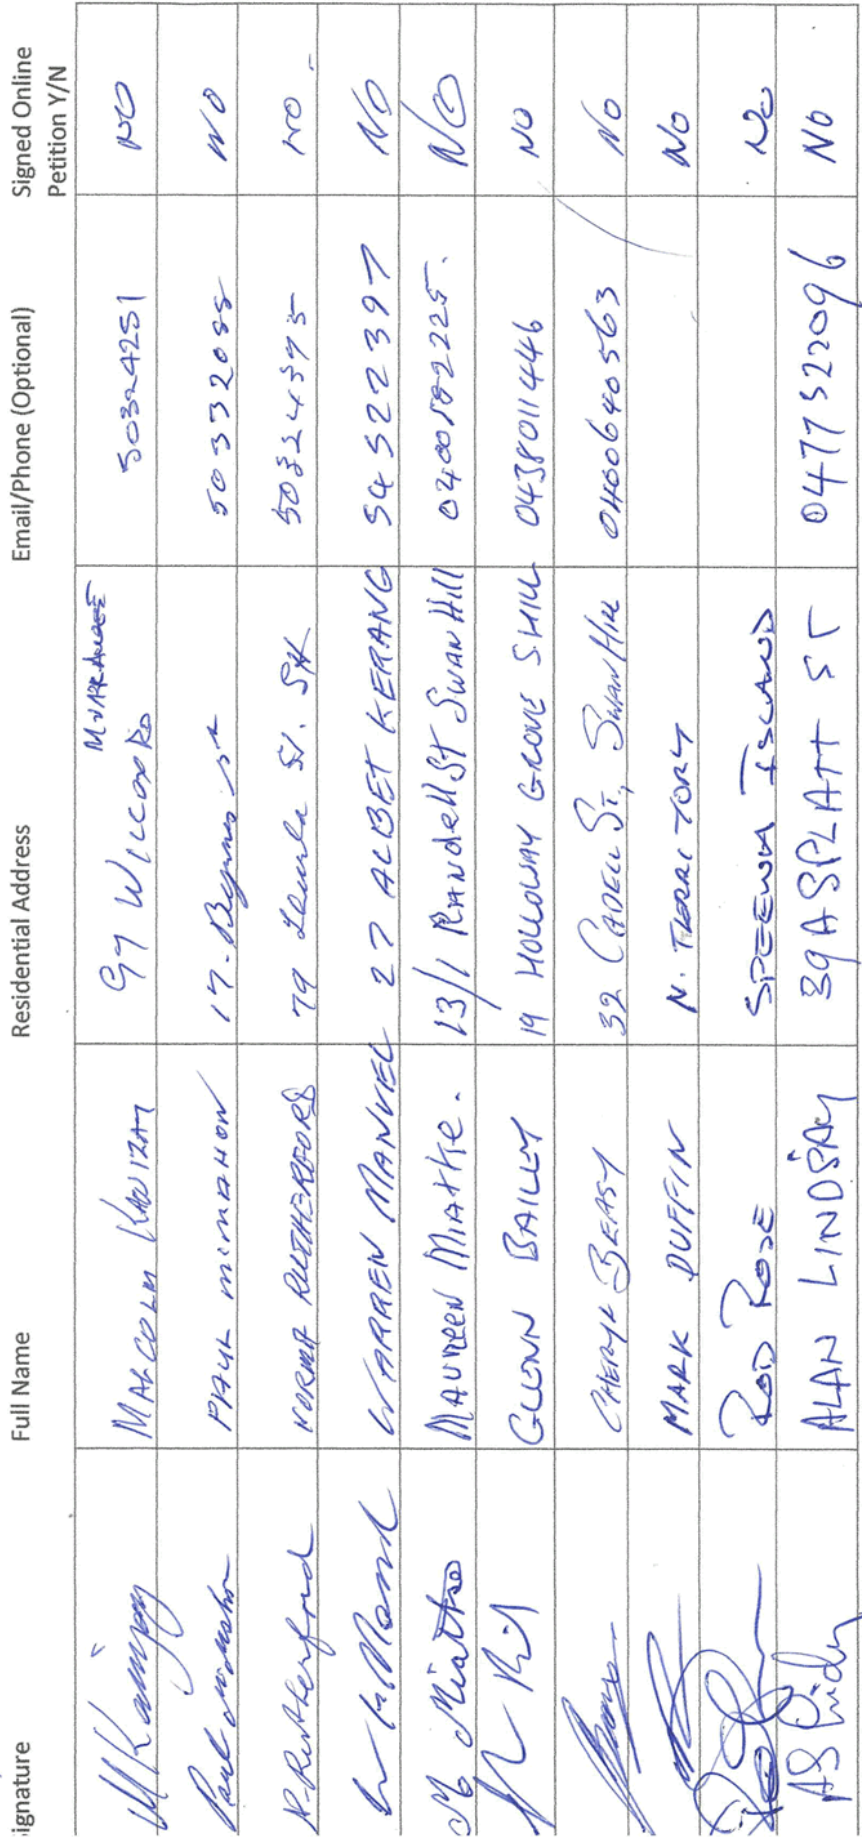 ignature Full Name Residential Address Email/Phone (Optional) Signed Online
Petition Y/N
MALCOLM 97 WILLCOX RD 50324251 NO
PAUL McMAHON 17 St 50332088 NO
R. Rutherford NORMA RUTHERFORD 79 St. SH NO
WARREN MANUEL 27 ALBET KERANG 54522397 NO
M Miatke MAUREEN MIATKE. 13/1 Randell St Swan Hill NO
GLENN BAILEY 19 HOLLOWAY GROVE S HILL 0438011446 NO
CHERYL BEASY 32 CADELL ST, SWAN HILL 0400640563 NO
MARK DUFFIN N. TERRITORY NO
ROD ROSE SPEEWA ISLAND NO
ALAN LINDSAY 39A SPLATT ST 0477522096 NO